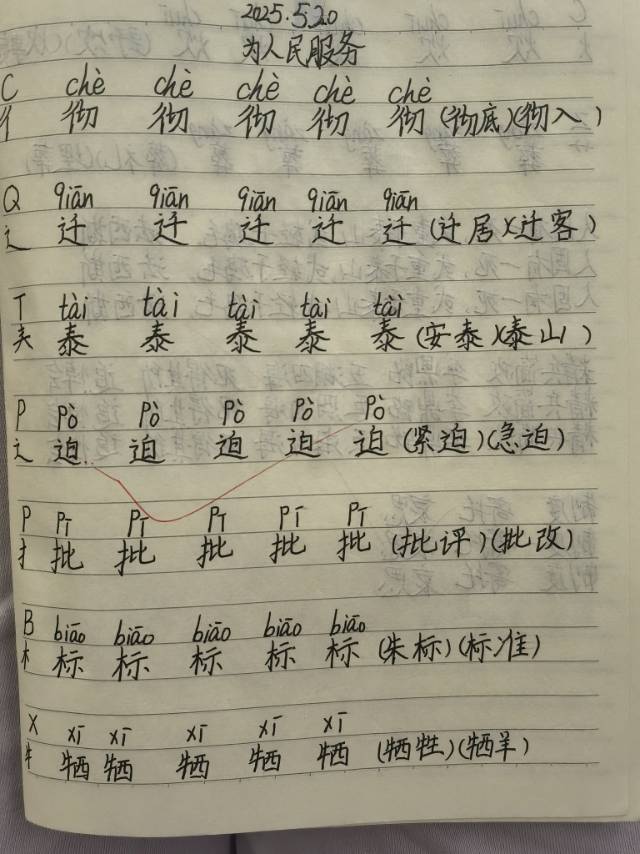 2025.5.20
为人民服务
C chè chè chè chè chè
彳 彻 彻 彻 彻 彻 (彻底)(彻入)
Q qiān qiān qiān qiān qiān
辶 迁 迁 迁 迁 迁 (迁居)(迁客)
T tài tài tài tài tài
𡗗 泰 泰 泰 泰 泰 (安泰)(泰山)
P pò pò pò pò pò
辶 迫 迫 迫 迫 迫 (紧迫)(急迫)
P pī pī pī pī pī
扌 批 批 批 批 批 (批评)(批改)
B biāo biāo biāo biāo biāo
木 标 标 标 标 标 (朱标)(标准)
X xī xī xī xī xī
牜 牺 牺 牺 牺 牺 (牺牲)(牺羊)